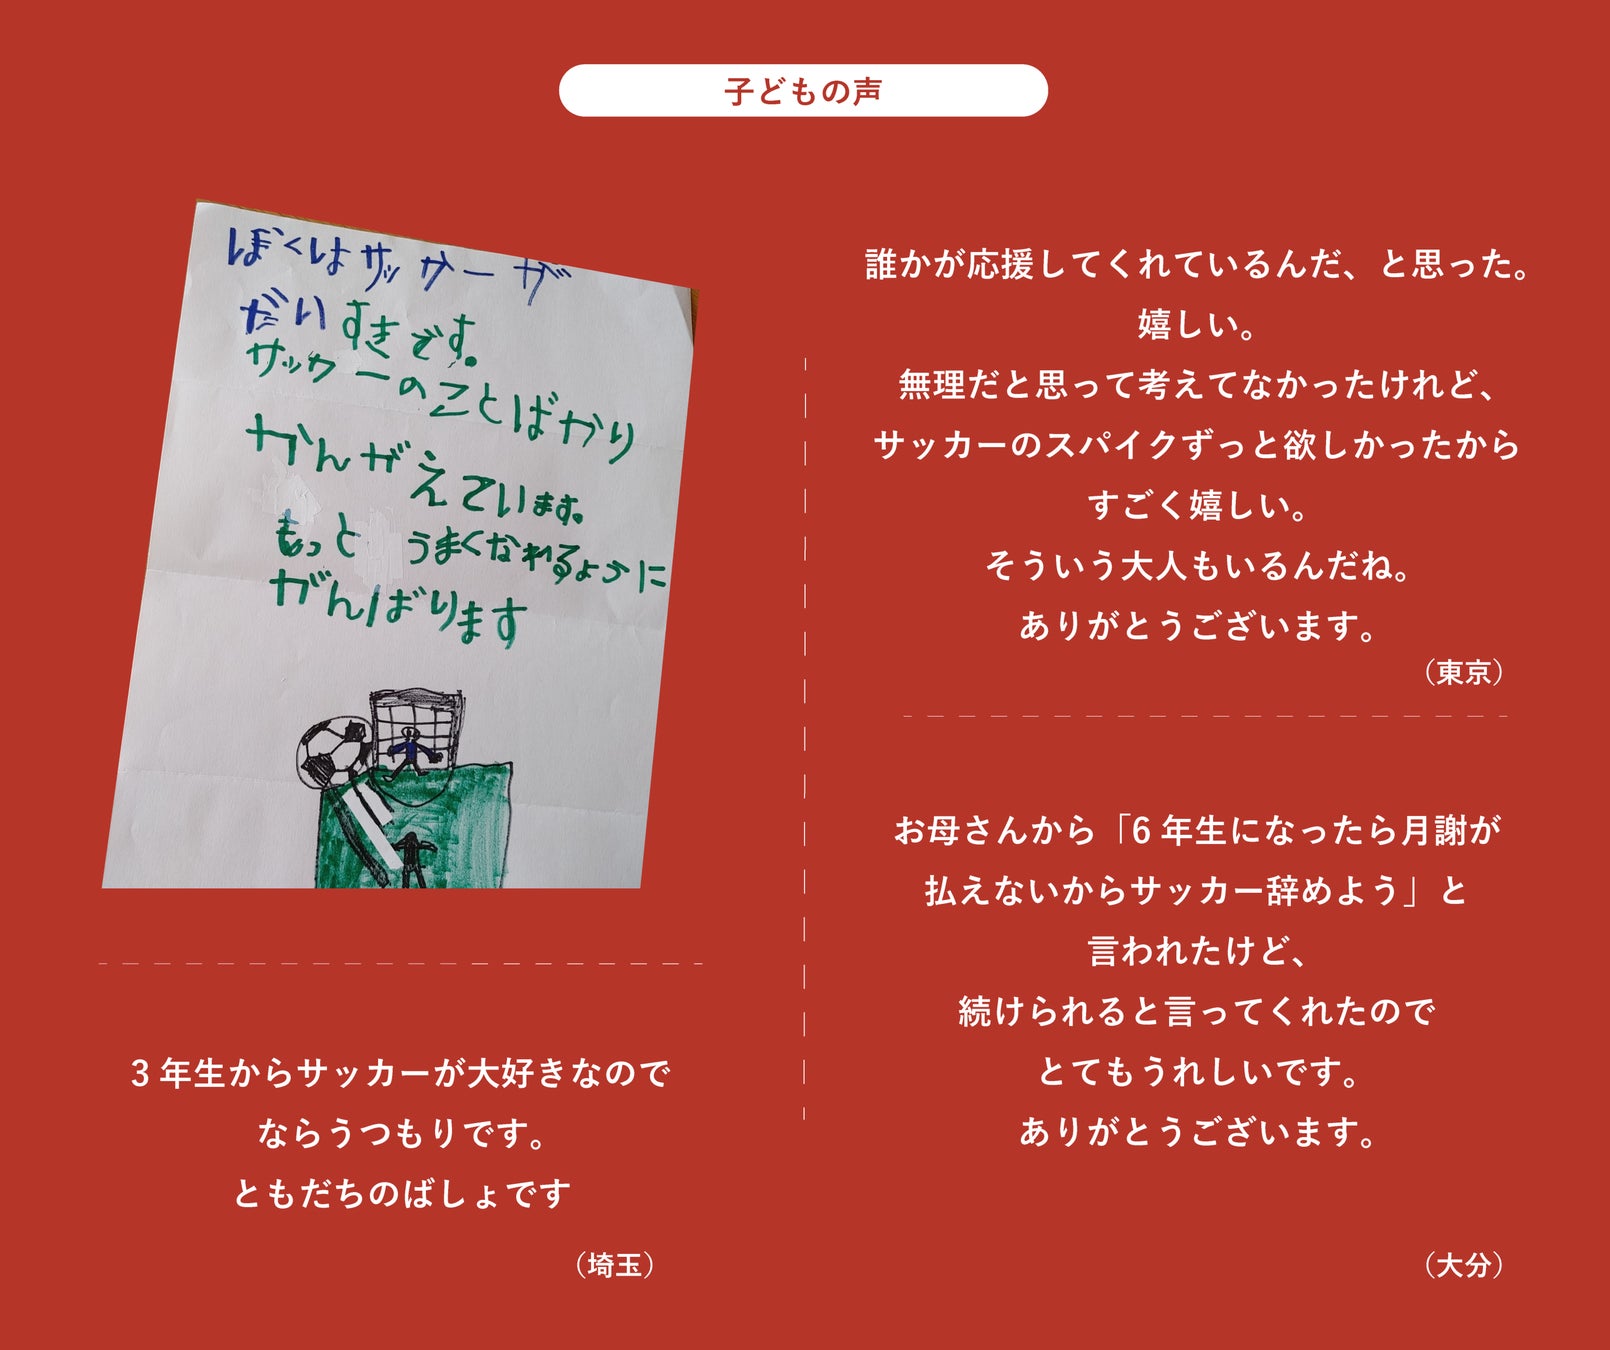 子どもの声
ぼくはサッカーが
だいすきです。
サッカーのことばかり
かんがえています。
もっと うまくなれるように
がんばります
3年生からサッカーが大好きなので
ならうつもりです。
ともだちのばしょです
（埼玉）
誰かが応援してくれているんだ、と思った。
嬉しい。
無理だと思って考えてなかったけれど、
サッカーのスパイクずっと欲しかったから
すごく嬉しい。
そういう大人もいるんだね。
ありがとうございます。
（東京）
お母さんから「6年生になったら月謝が
払えないからサッカー辞めよう」と
言われたけど、
続けられると言ってくれたので
とてもうれしいです。
ありがとうございます。
（大分）